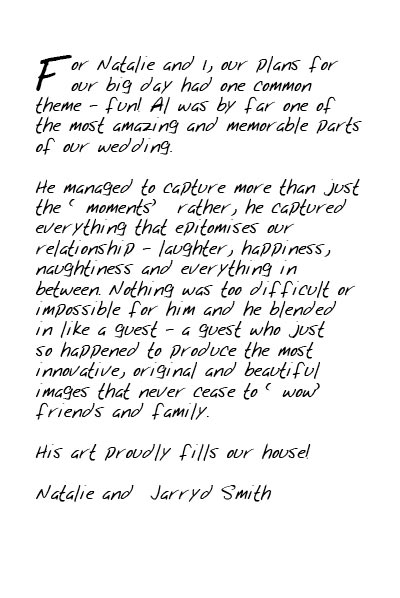 For Natalie and I, our plans for
our big day had one common
theme - fun! Al was by far one of
the most amazing and memorable parts
of our wedding.
He managed to capture more than just
the ‘ moments’ rather, he captured
everything that epitomises our
relationship - laughter, happiness,
naughtiness and everything in
between. Nothing was too difficult or
impossible for him and he blended
in like a guest - a guest who just
so happened to produce the most
innovative, original and beautiful
images that never cease to ‘ wow’
friends and family.
His art proudly fills our house!
Natalie and Jarryd Smith